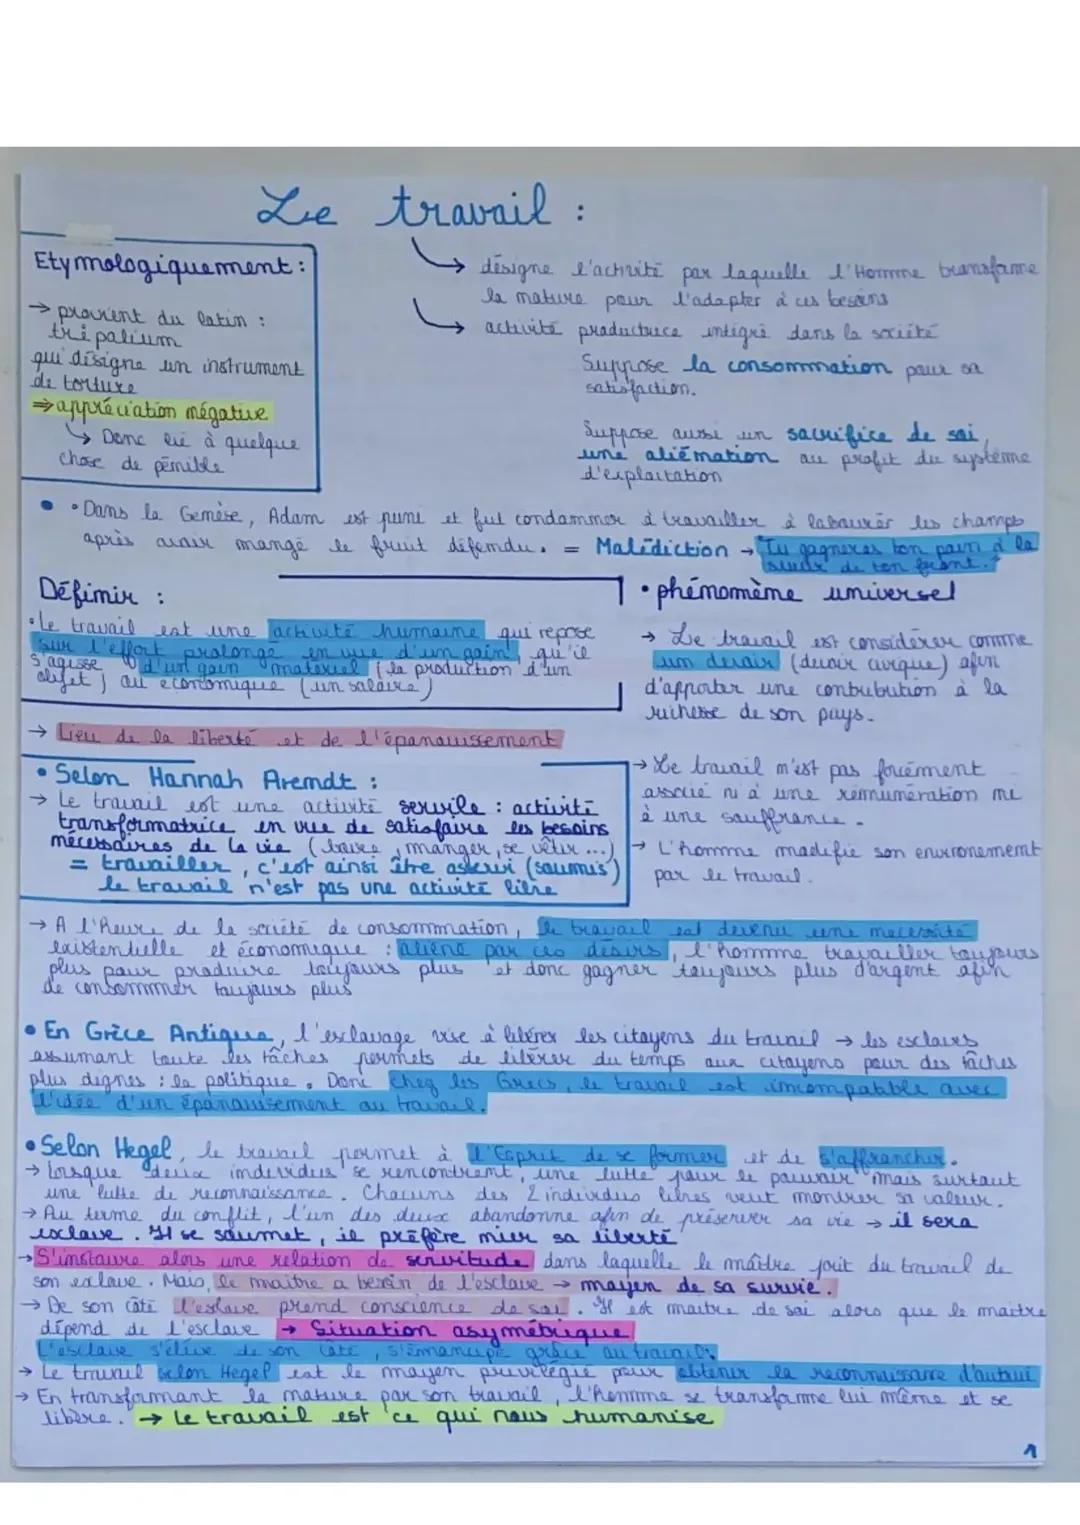 Le travail :
Etymologiquement :
→ provient du latin :
trépalium
qui désigne un instrument
de torture
⇒ appréciation négative
↳ Donc lié à quelque
chose de pénible
↳ désigne l'activité par laquelle l'Homme transforme
la nature pour l'adapter à ces besoins
↳ activité productrice intégré dans la société
Suppose la consommation pour sa
satisfaction.
Suppose aussi un sacrifice de soi,
une aliénation au profit du système
d'exploitation
• Dans la Genèse, Adam est puni et fut condamner à travailler à labourer les champs
après avoir mangé le fruit défendu. = Malédiction → "Tu gagneras ton pain à la
sueur de ton front."
Définir :
• Le travail est une activité humaine qui repose
sur l'effort prolongé en vue d'un gain, qu'il
s'agisse d'un gain matériel (la production d'un
objet) ou économique (un salaire)
→ Lieu de la liberté et de l'épanouissement
• phénomène universel
→ Le travail est considérer comme
un devoir (devoir civique) afin
d'apporter une contribution à la
richesse de son pays.
→ Le travail n'est pas forcément
associé ni à une rémunération ni
à une souffrance.
→ L'homme modifie son environnement
par le travail.
• Selon Hannah Arendt :
→ Le travail est une activité servile : activité
transformatrice en vue de satisfaire les besoins
nécessaires de la vie (boire, manger, se vêtir ...)
= travailler, c'est ainsi être asservi (soumis)
le travail n'est pas une activité libre
→ A l'heure de la société de consommation, le travail est devenu une nécessité
existentielle et économique : aliéné par ces désirs, l'homme travailler toujours
plus pour produire toujours plus et donc gagner toujours plus d'argent afin
de consommer toujours plus
• En Grèce Antique, l'esclavage vise à libérer les citoyens du travail → les esclaves
assumant toute les tâches permets de libérer du temps aux citoyens pour des tâches
plus dignes : la politique. Donc chez les Grecs, le travail est incompatible avec
l'idée d'un épanouissement au travail.
• Selon Hegel, le travail permet à l'Esprit de se former et de s'affranchir.
→ Lorsque deux individus se rencontrent, une lutte pour le pouvoir mais surtout
une lutte de reconnaissance. Chacuns des 2 individus libres veut montrer sa valeur.
→ Au terme du conflit, l'un des deux abandonne afin de préserver sa vie → il sera
esclave. Il se soumet, il préfère nier sa liberté
→ S'instaure alors une relation de servitude dans laquelle le maître jouit du travail de
son esclave. Mais, le maître a besoin de l'esclave → moyen de sa survie.
→ De son côté l'esclave prend conscience de soi. Il est maître de soi alors que le maître
dépend de l'esclave → Situation asymétrique
L'esclave s'élève de son côté, s'émancipe grâce au travail.
→ Le travail selon Hegel est le moyen privilégié pour obtenir la reconnaissance d'autrui
→ En transformant la nature par son travail, l'homme se transforme lui même et se
libère. → Le travail est ce qui nous humanise
1